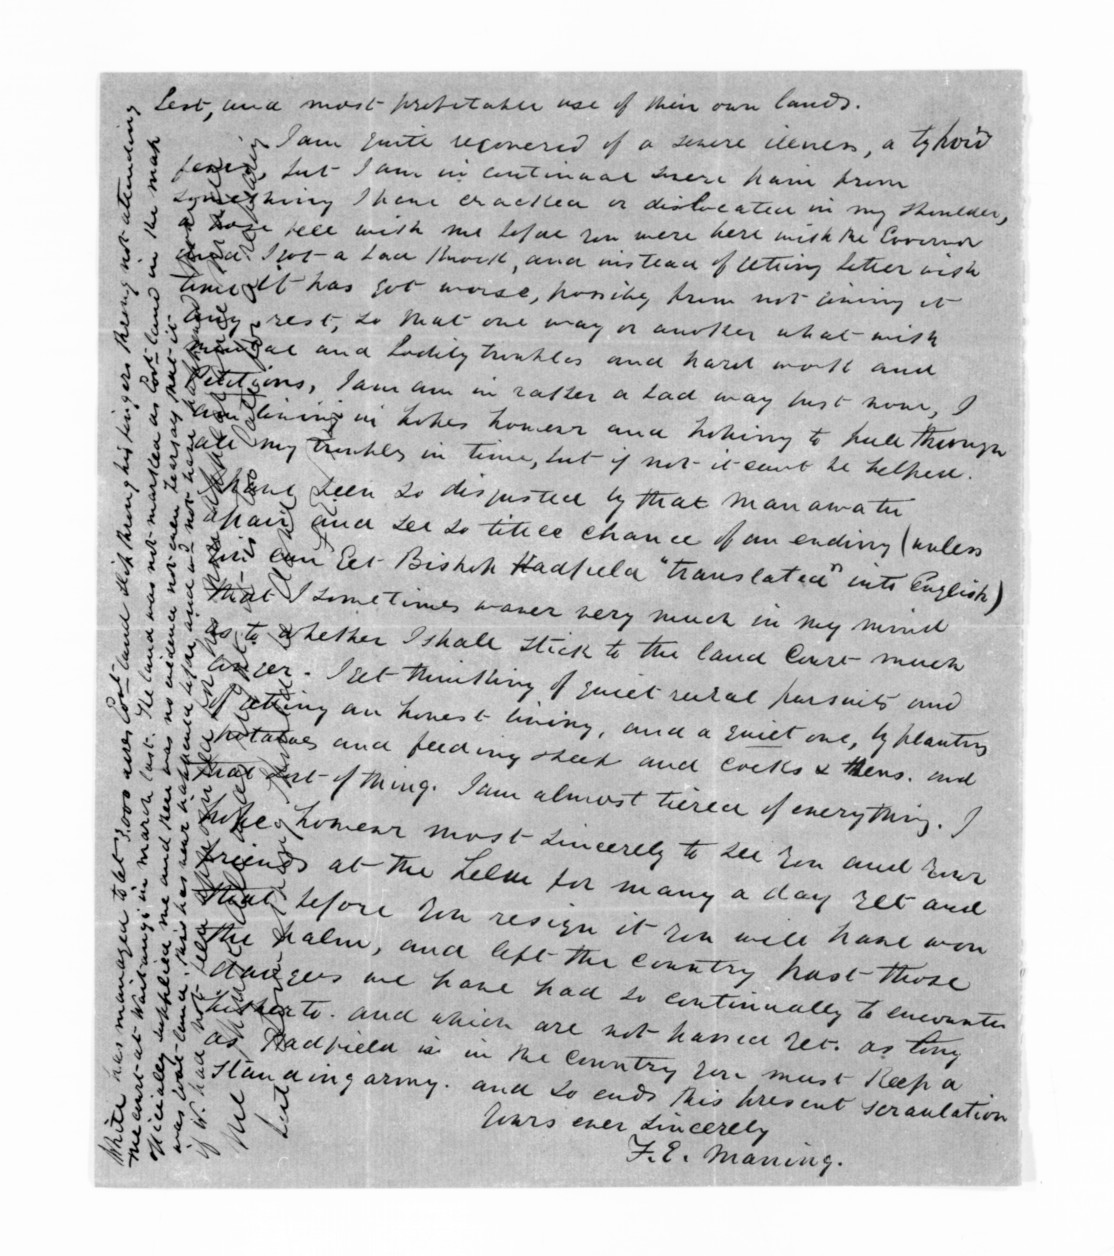 best, and most profitable use of their own lands.
I am quite recovered of a severe illness, a typhoid
fever, but I am in continual severe pain from
something I have cracked or dislocated in my shoulder,
a horse fell with me before you were here with the Governor
and I got a bad knock, and instead of getting better with
time it has got worse, possibly from not giving it
any rest, so that one way or another what with
mental and bodily troubles and hard work and
Petitions, I am am in rather a bad way just now, I
am living in hopes however and hoping to pull through
all my troubles in time, but if not it cant be helped.
I have been so disgusted by that Manawatu
affair and see so little chance of an ending (unless
we can get Bishop Hadfield "translated" into English)
that I sometimes waver very much in my mind
as to whether I shall stick to the land Court much
longer. I get thinking of quiet rural pursuits and
getting an honest living, and a quiet one, by planting
potatoes and feeding sheep and cocks & hens. and
that sort of thing. I am almost tiered of everything. I
hope however most sincerely to see you and your
friends at the helm for many a day yet and
that before you resign it you will have won
the palm, and left the country past those
dangers we have had so continually to encounter
hitherto. and which are not passed yet. as long
as Hadfield is in the country you must keep a
standing army. and so ends this present
Yours ever sincerely
F. E. Maning.
White has managed to let 3.000 acres Govt land slip through his fingers through not attending
the court at Waitangi in March last. The land was not marked as Govt land in the map
officially supplied me and there was no evidence not even hearsay that it
was Govt land. This has never happened before and would not have happened
if W. had not
me
but